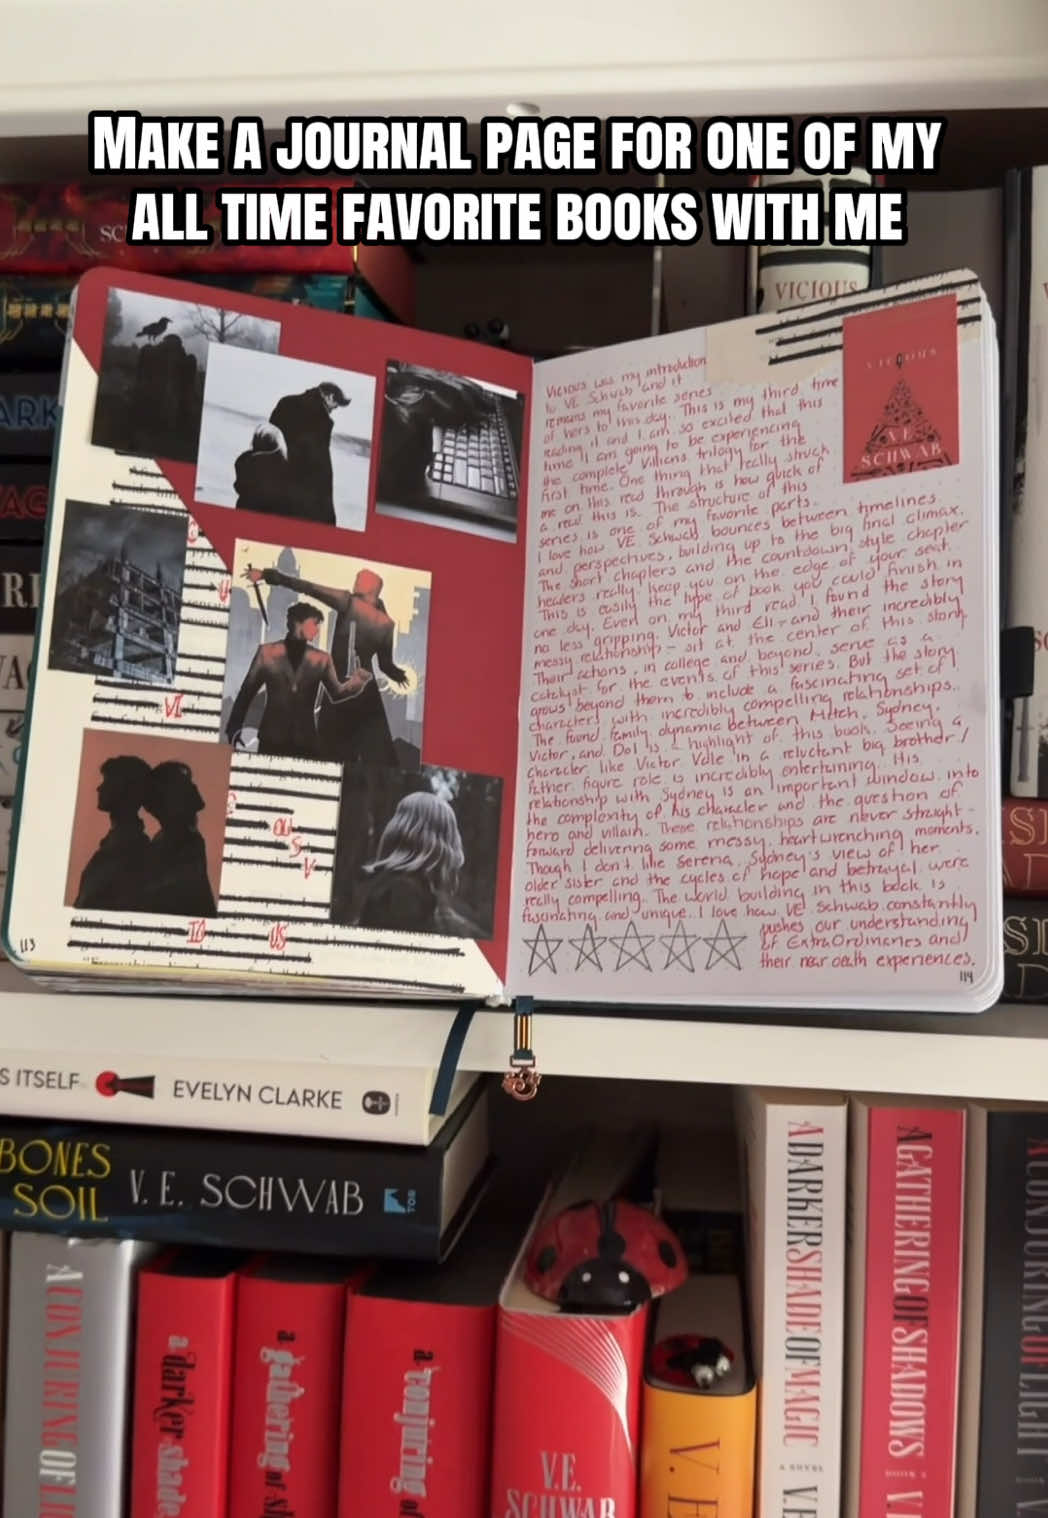 MAKE A JOURNAL PAGE FOR ONE OF MY
ALL TIME FAVORITE BOOKS WITH ME
VICIOUS
Vicious was my introduction
to VE Schwab and it
remains my favorite series
of hers to this day. This is my third time
reading it and I am so excited that this
time I am going to be experiencing
the complete Villians trilogy for the
first time. One thing that really struck
me on this read through is how quick of
a read this is. The structure of this
series is one of my favorite parts.
I love how VE Schwab bounces between timelines
and perspectives, building up to the big final climax.
The short chapters and the countdown style chapter
headers really keep you on the edge of your seat.
This is easily the type of book you could finish in
one day. Even on my third read I found the story
no less gripping. Victor and Eli - and their incredibly
messy relationship - sit at the center of this story.
Their actions, in college and beyond, serve as a
catalyst for the events of this series. But the story
grows beyond them to include a fascinating set of
characters with incredibly compelling relationships.
The found family dynamic between Mitch, Sydney,
Victor, and Dol is a highlight of this book. Seeing a
character like Victor Vale in a reluctant big brother/
father figure role is incredibly entertaining. His
relationship with Sydney is an important window into
the complexity of his character and the question of
hero and villain. These relationships are never straight-
forward delivering some messy, heartwrenching moments.
Though I don't like Serena, Sydney's view of her
older sister and the cycles of hope and betrayal were
really compelling. The world building in this book is
fascinating and unique. I love how VE Schwab constantly
pushes our understanding
of ExtraOrdinaries and
their near death experiences.
VICIOUS
V.E.
SCHWAB
VI
C
I
OU
S
V
IO
US
113
114
S ITSELF EVELYN CLARKE
BONES
SOIL
V. E. SCHWAB
TOR
A CONJURING OF LIG
a darker shade
a gathering of sh
a conjuring o
V.E.
SCHWAB
V. E
A DARKER SHADE OF MAGIC
A NOVEL
V.E
A GATHERING OF SHADOWS
V.
A CONJURING OF LIGHT